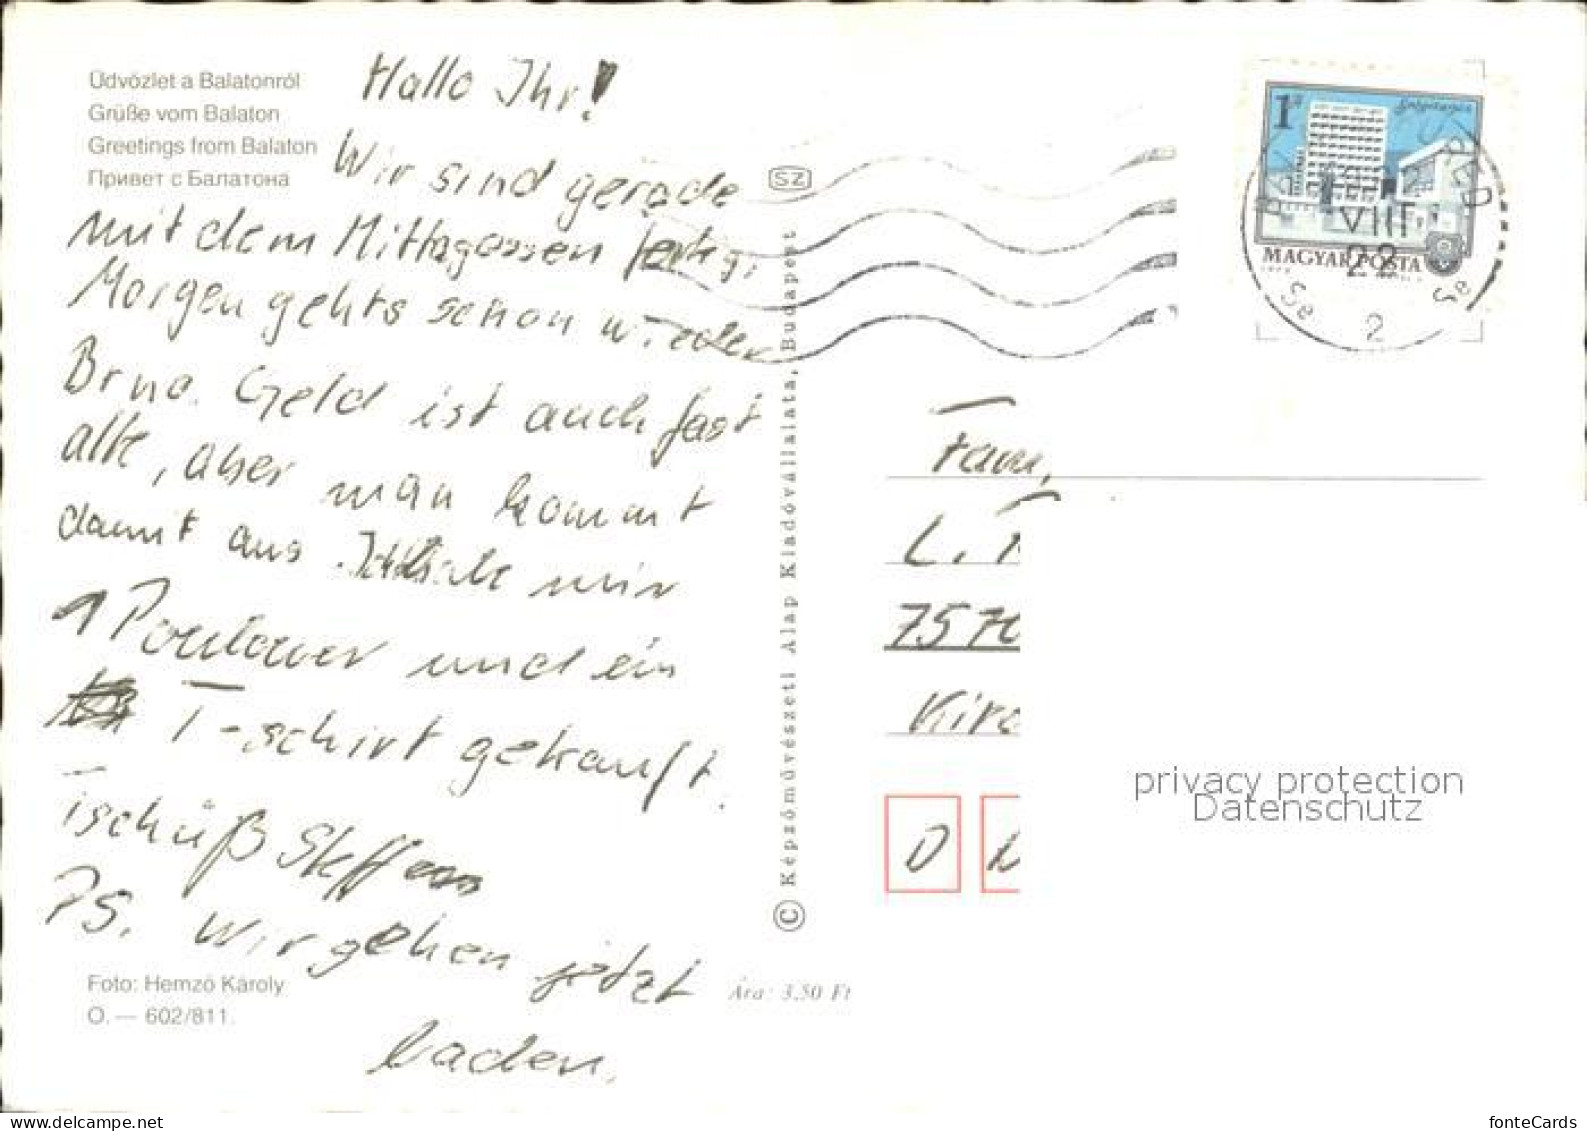 Üdvözlet a Balatonról
Grüße vom Balaton
Greetings from Balaton
Привет с Балатона
Hallo Ihr!
Wir sind gerade
mit dem Mittagessen fertig.
Morgen gehts schon wieder
Brno. Geld ist auch fast
alle, aber man kommt
damit aus. Ich habe mir
1 Poulover und ein
T-schirt gekauft.
Tschüß Steffen
PS. Wir gehen jetzt
baden.
Foto: Hemző Károly
O. — 602/811.
Ára: 3,50 Ft
© Képzőművészeti Alap Kiadóvállalata, Budapest
SZ
1 Ft
Salgótarján
MAGYAR POSTA
VIII
22
2
Fam.
L.
7570
Kirc
D
privacy protection
Datenschutz
www.delcampe.net
fonteCards